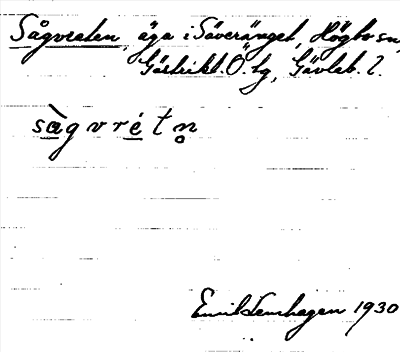 Sågvreten, äga i Säveränget, Högbo sn,
Gästrikl. Ö. tg, Gävleb. l.
sàgvrétn̥
Emil Lenhagen 1930